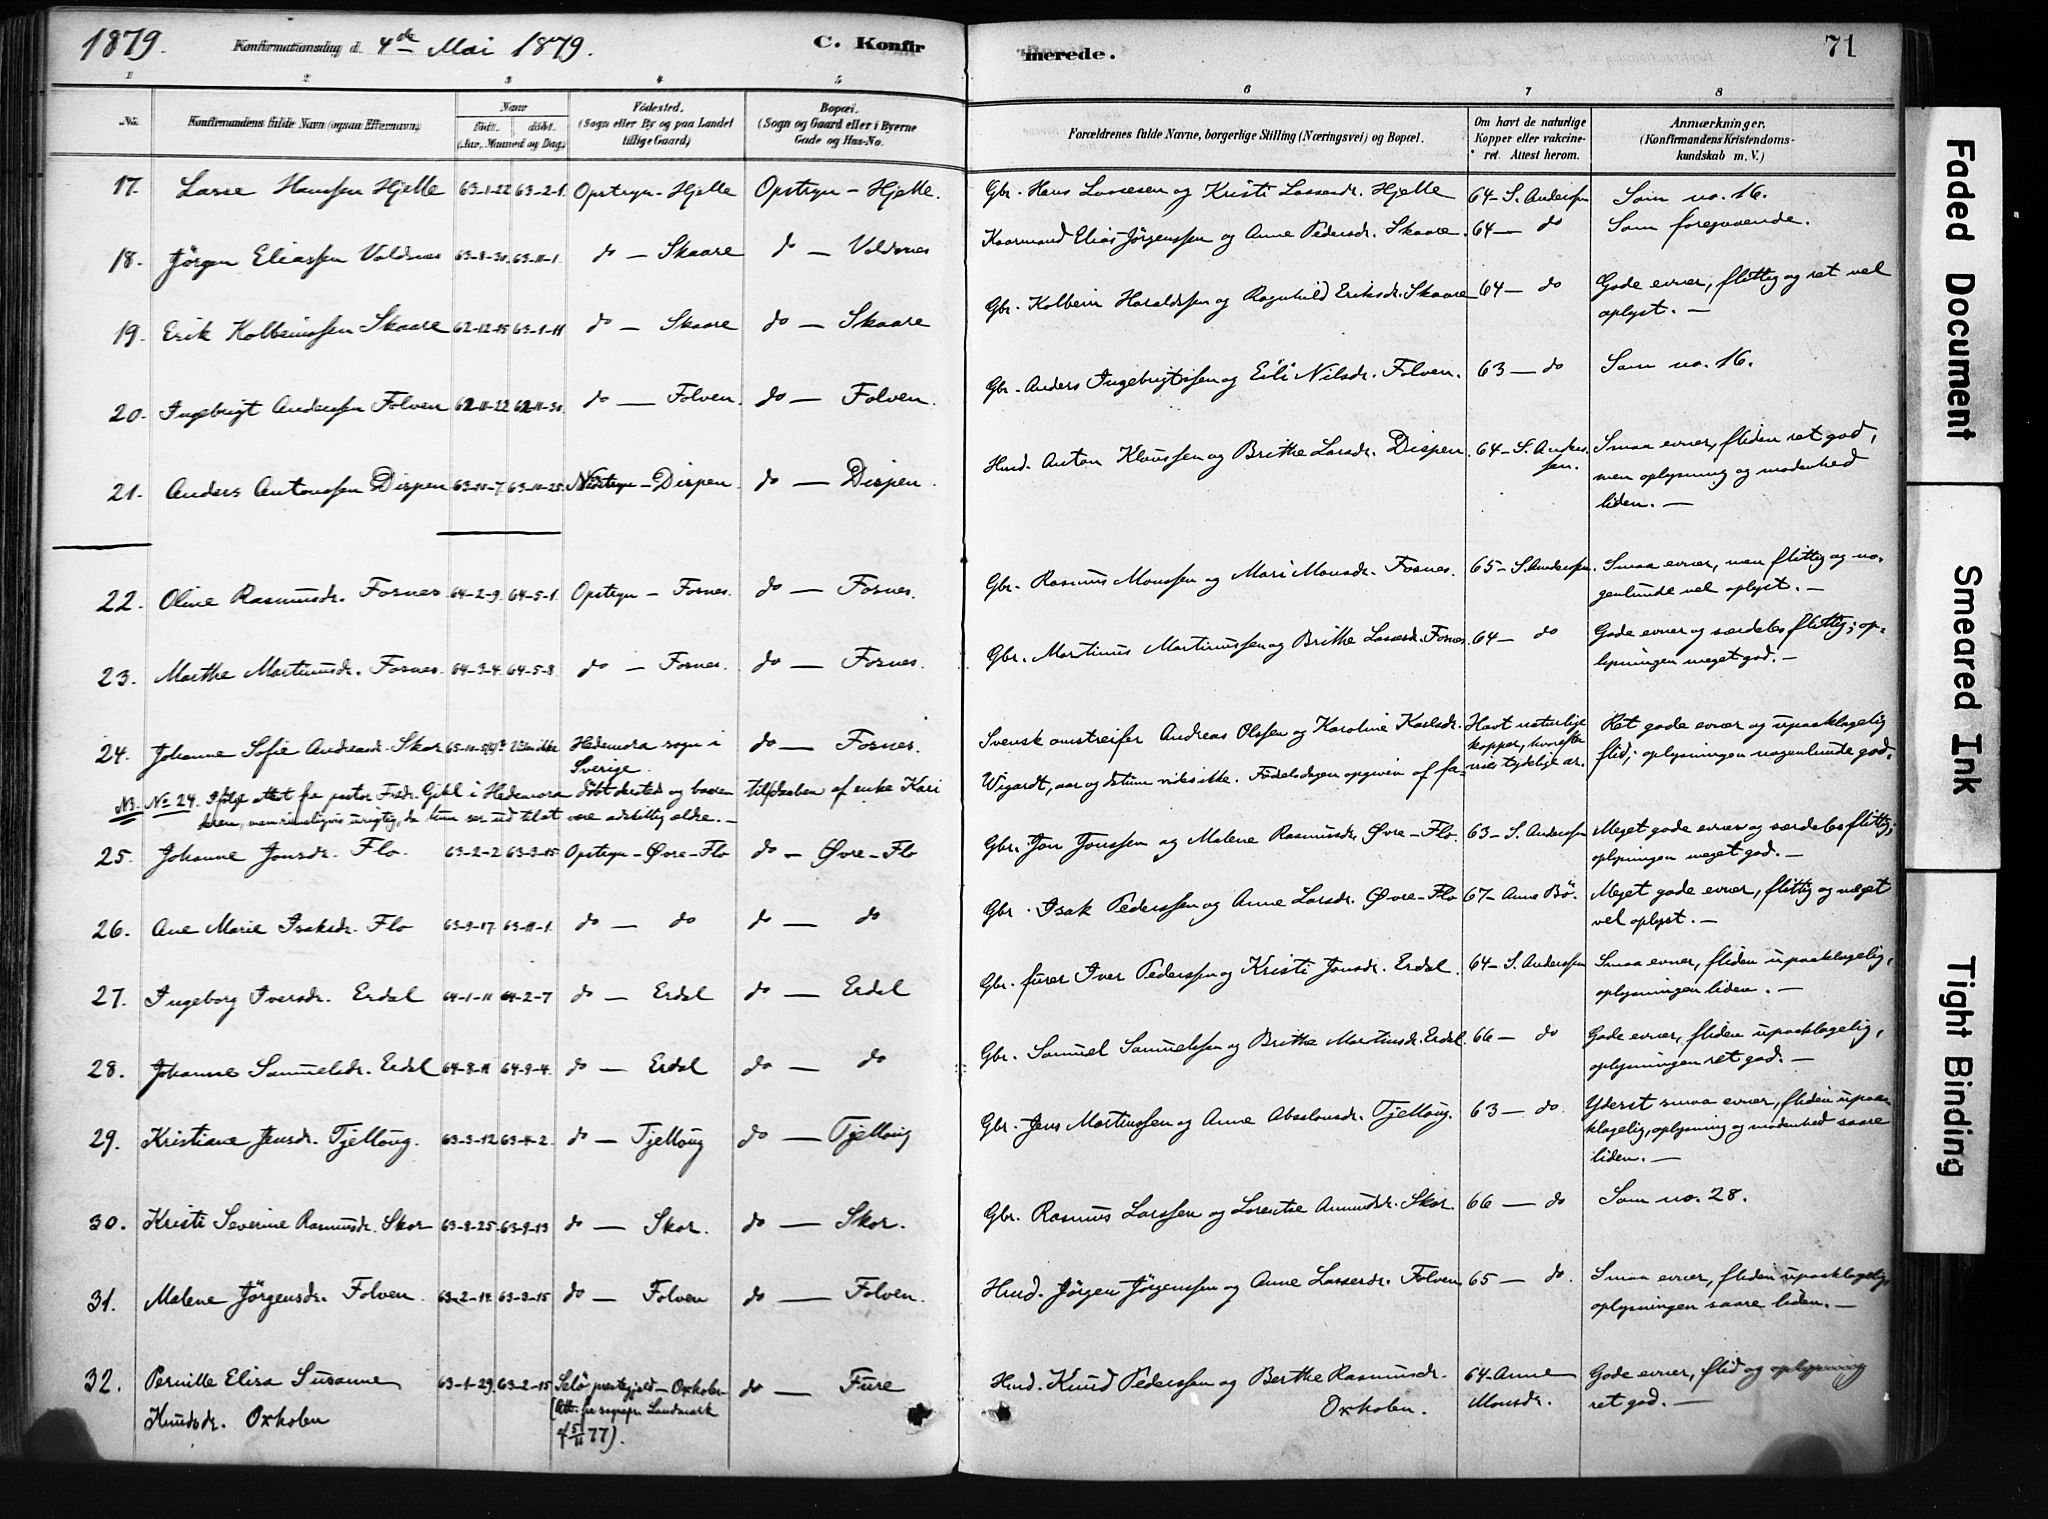 1879. Konfirmationsdag d. 4de Mai 1879. C. Konfirmerede. 71
1 2 3 4 5 6 7 8
No. Konfirmandens fulde Navn (ogsaa Efternavn) Naar födt. döbt. (Aar, Maaned og Dag) Födested. (Sogn eller By og paa Landet tillige Gaard) Bopæl. (Sogn og Gaard eller i Byerne Gade og Hus-No. Forældrenes fulde Navne, borgerlige Stilling (Næringsvei) og Bopæl. Om havt de naturlige Kopper eller vakcineret. Attest herom. Anmærkninger. (Konfirmandens Kristendomskundskab m. V.)
17. Lasse Hanssen Hjelle 63-1-22 63-2-1 Opstryn - Hjelle Opstryn - Hjelle. Gbr. Hans Lassesen og Kristi Lassesdr. Hjelle 64- S. Anderssen Som no. 16.
18. Jörgen Eliassen Voldsnes 63-8-30 63-11-1. do - Skaare do - Voldsnes Kaarmand Elias Jörgenssen og Anne Pedersdr. Skaare. 64- do Som foregaaende.
19. Erik Kolbeinssen Skaare 62-12-15 63-1-11 do - Skaare do - Skaare Gbr. Kolbein Haraldssen og Ragnhild Eriksdr. Skaare 64- do Gode evner, flittig og ret vel
oplyst. -
20. Ingebrigt Anderssen Folven 62-11-22 62-11-30 do - Folven. do - Folven. Gbr. Anders Ingebrigtssen og Eili Nilsdr. Folven. 63 - do Som no. 16.
21. Anders Antonssen Dispen 63-10-7 63-10-25 Nedstryn - Dispen. do - Dispen. Husd. Anton Klaussen og Brithe Larsdr. Dispen. 64- S. Anderssen. Smaa evner, fliden ret god,
men oplysning og modenhed
liden. -
22. Oline Rasmusdr. Fosnes 64-2-9 64-5-1. Opstryn - Fosnes. do - Fosnes. Gbr. Rasmus Monssen og Mari Monsdr. Fosnes. 65- S. Anderssen. Smaa evner, men flittig og no-
genlunde vel oplyst. -
23. Marthe Martinusdr. Fosnes. 64-3-4 64-5-8 do - Fosnes. do - Fosnes. Gbr. Martinus Martinussen og Brithe Lassesdr. Fosnes 64- do Gode evner og særdeles flittig; op-
lysningen meget god. -
24. Johanne Sofie Andreasdr. Skor Hedemora sogn i do - Fosnes. Svensk omstreifer Andreas Olsen og Karoline Karlsdr. Havt naturlige Ret gode evner og upaaklagelig
Sverige. Wigardt, aar og datum vides ikke. Födselsdagen opgiven af fa- kopper, hvorefter tydelige ar. flid; oplysningen nogenlunde god.
NB. No 24. Ifölge attest fra pastor Fredr. i Hedemora döbt dersteds og baaren til daaben af enke Kari
deren, men rimeligvis urigtig, da hun ser ud til at være adskillig ældre. -
25. Johanne Jonsdr. Flo. 63-2-2 63-3-15 Opstryn - Øvre-Flo do - Øvre-Flo Gbr. Jon Jonssen og Malene Rasmusdr. Øvre-Flo. 63- S. Anderssen Meget gode evner og særdeles flittig;
oplysningen meget god. -
26. Ane Marie Isaksdr. Flo 63-9-17 63-11-1. do - do do - do Gbr. Isak Pederssen og Anne Larsdr. Øvre-Flo 67- Anne Bö. Meget gode evner, flittig og meget
vel oplyst. -
27. Ingeborg Iversdr. Erdal 64-1-11 64-2-7 do - Erdal do - Erdal Gbr. furer Iver Pederssen og Kristi Jonsdr. Erdal. 64- S. Anderssen Smaa evner, fliden upaaklagelig,
oplysningen liden. -
28. Johanne Samuelsdr. Erdal 64-8-11 64-9-4. do - Erdal do - do Gbr. Samuel Samuelssen og Brithe Martinsdr. Erdal. 66- do Gode evner, fliden upaaklagelig,
oplysningen ret god. -
29. Kristiane Jensdr. Tjellaug. 63-3-12 63-4-2. do - Tjellaug do - Tjellaug Gbr. Jens Martinssen og Anne Absalonsdr. Tjellaug. 63 - do. Yderst smaa evner, fliden upaa-
klagelig, oplysning og modenhed saare
liden. -
30. Kristi Severine Rasmusdr. Skor 63-8-25 63-9-13 do - Skor. do - Skor. Gbr. Rasmus Larssen og Lorentse Amundsdr. Skor. 66 - do Som no. 28.
31. Malene Jörgensdr. Folven. 63-2-14 63-3-15 do - Folven do - Folven. Husd. Jörgen Jörgenssen og Anne Lassesdr. Folven 65 - do. Smaa evner, fliden upaaklagelig,
oplysningen saare liden. -
32. Pernille Elisa Susanne 63-1-29 63-2-15 Selö prestegjeld - Oxholen do - Fure Husd. Knud Pederssen og Berthe Rasmusdr. 64- Anne Gode evner, flid og oplysning
Knudsdr. Oxholen (Att. fra sognepr. Landmark Oxholen. Monsdr. ret god. -
af 5/11 77).
Faded Document
Smeared Ink
Tight Binding